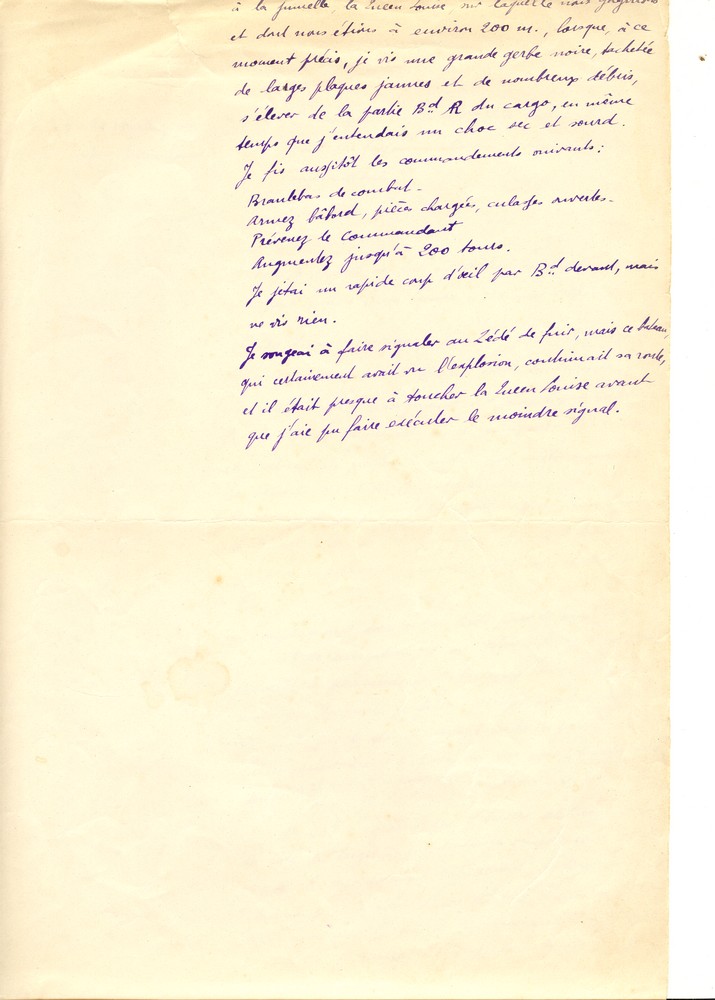 à la jumelle, la Queen Louise, sur laquelle nous gagnions
et dont nous étions à environ 200 m., lorsque, à ce
moment précis, je vis une grande gerbe noire, tachetée
de larges plaques jaunes et de nombreux débris,
s'élever de la partie Bd AR du cargo, en même
temps que j'entendais un choc sec et sourd.
Je fis aussitôt les commandements suivants :
Branlebas de combat.
Armez bâbord, pièces chargées, culasses ouvertes.
Prévenez le Commandant
Augmentez jusqu'à 200 tours.
Je jetai un rapide coup d'œil par Bd devant, mais
ne vis rien.
Je songeai à faire signaler au Zédé de fuir, mais ce bateau,
qui certainement avait vu l'explosion, continuait sa route,
et il était presque à toucher la Queen Louise avant
que j'aie pu faire exécuter le moindre signal.